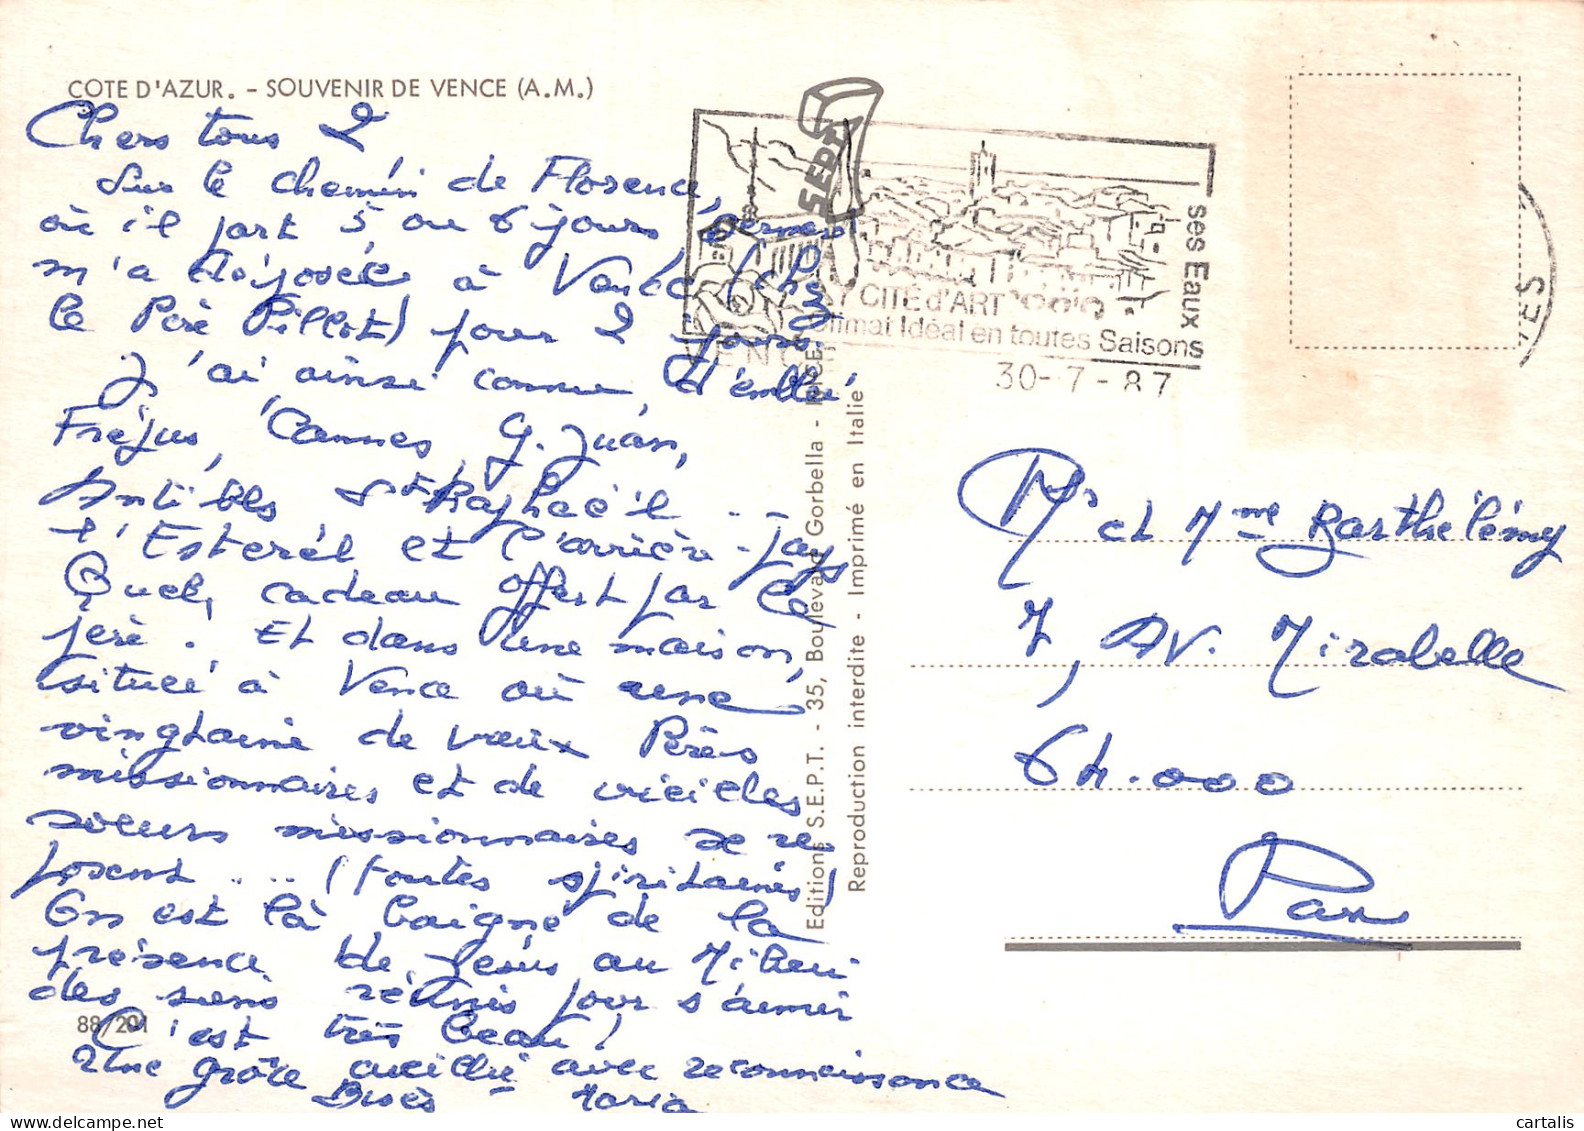 COTE D'AZUR. - SOUVENIR DE VENCE (A.M.)
Chers tous 2
Sur le chemin de Florence,
où il part 5 ou 6 jours,
m'a déposée à Vence (chez
le Père Pillot) pour 2 jours.
J'ai ainsi connu d'emblée
Fréjus, Cannes, G. Juan,
Antibes St Raphaël ...
l'Esterel et l'arrière-pays
Quel cadeau offert par le
père. Et dans une maison,
située à Vence où une
vingtaine de vieux Pères
missionnaires et de vieilles
soeurs missionnaires se re-
posent .... (toutes spiritaines)
On est là baigné de la
présence de Jésus au Milieu
des siens réunis pour s'aimer
C'est très beau!
Une grâce accueillie avec reconnaissance
Bises - Maria
88/201
SEPT
VENCE CITÉ d'ART
Climat Idéal en toutes Saisons
ses Eaux
30-7-87
Editions S.E.P.T. - 35, Boulevard Gorbella - NICE
Reproduction interdite - Imprimé en Italie
Mr et Mme Barthélémy
7, Av. Mirabelle
64.000
Pau
cartalis